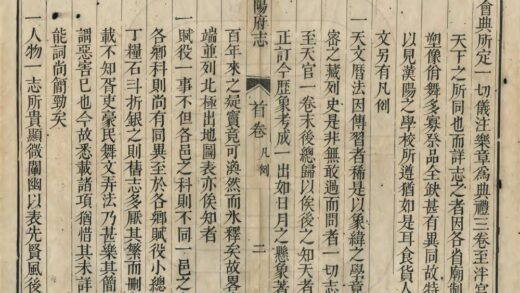 會典所定一切儀注樂章為典禮三卷至泮宮
天下之所同也而詳志之者因各省廟制
塑像佾舞多寡祭品全缺甚有異同故特
以見漢陽之學校所遵猶如是耳食貨人
文另有凡例
一天文曆法因傳習者稀是以象緯之學竟
密之藏列史是非無敢過而問者一切志
至天官一卷末後總歸以俟後之知天者
正訂今歷象考成一出如日月之懸象著
陽府志
首卷 凡例 二
百年來之疑竇竟可渙然而氷釋矣故畧
端並列北極出地圖表亦俟知者
一賦役一事不但各邑之科則不同一邑之
各鄉科則尚有同異至於各鄉賦役小總
丁糧石斗折銀之則舊志多厭其繁而刪
載不知胥吏豪民舞文弄法乃甚樂其簡
謂惡害已也今故悉載諸項猶惜其未詳
能詞尚簡勁矣
一人物一志所貴顯微闡幽以表先賢風後